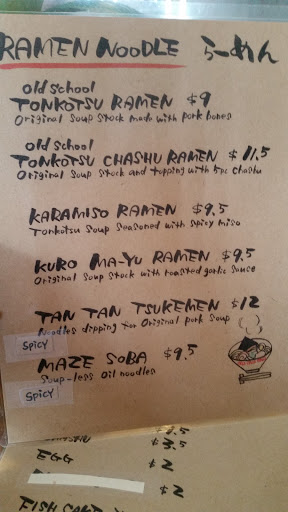 RAMEN NOODLE らーめん
old school
TONKOTSU RAMEN $9
Original soup stock made with pork bones
old school
TONKOTSU CHASHU RAMEN $11.5
Original soup stock and topping with 5pc chashu
KARAMISO RAMEN $9.5
Tonkotsu soup seasoned with spicy miso
KURO MA-YU RAMEN $9.5
Original soup stock with roasted garlic sauce
TAN TAN TSUKEMEN $12
Noodles dipping for Original pork soup
SPICY
MAZE SOBA $9.5
Soup-less oil noodles
SPICY
$3.5
EGG $2
$2
FISH